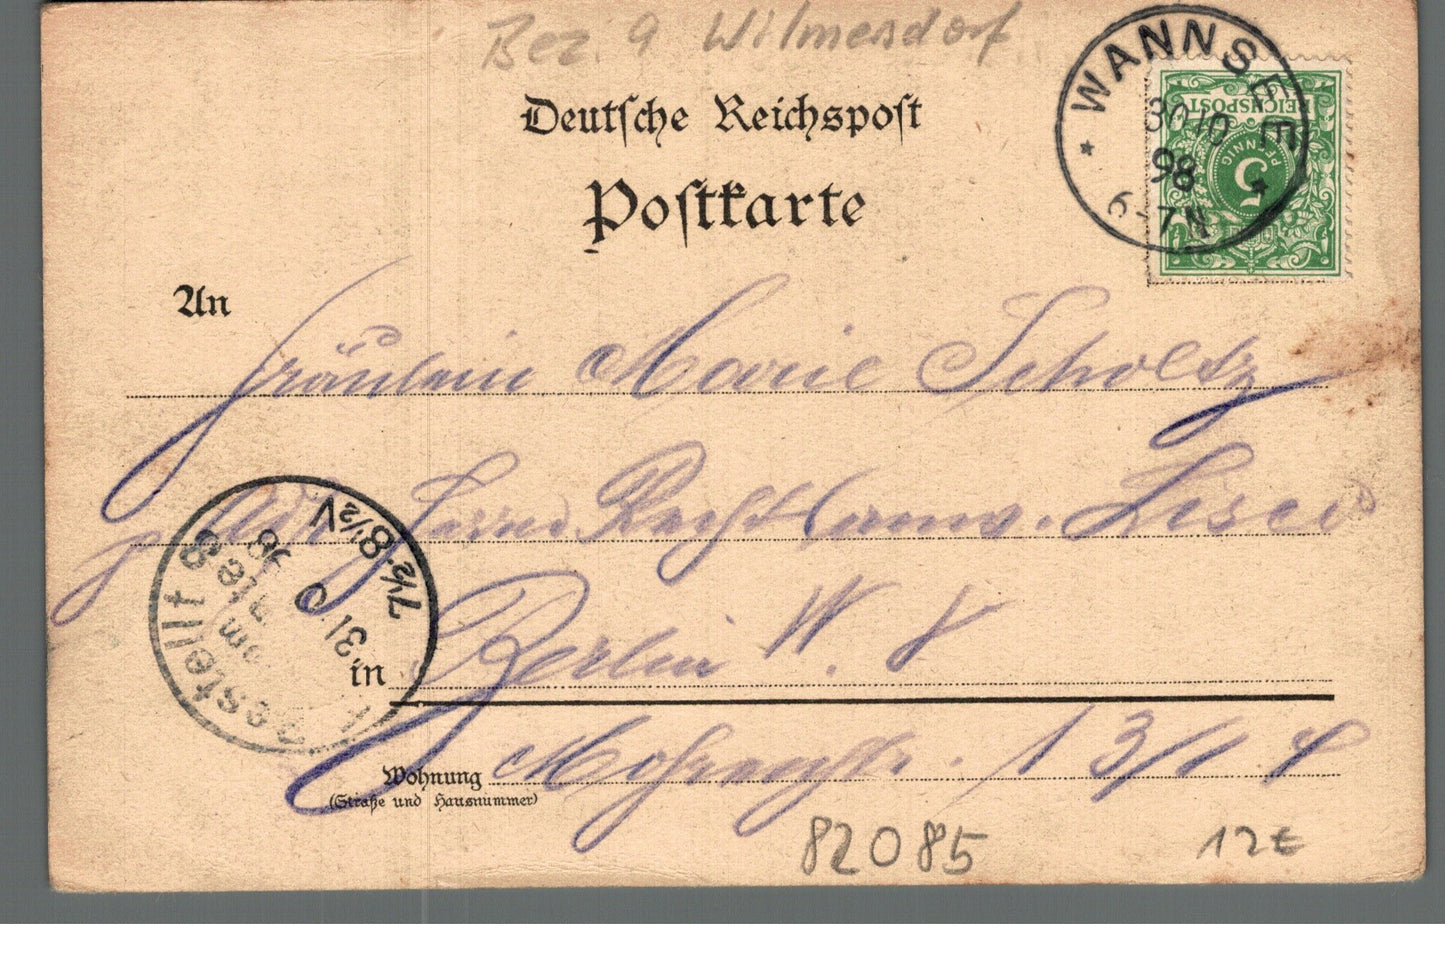 Bez. 9 Wilmersdorf
Deutsche Reichspost
Postkarte
WANNSEE
30 10
98
6-7N
REICHSPOST
5
PFENNIG
An
Fräulein Marie Scholtz
Herrn Rechtsanw.
Bestellt
vom
Postamte
8
31 10
98
7½-8½V
in Berlin W. 8
Wohnung Mohrenstr. 13/14
(Straße und Hausnummer)
82085
12€